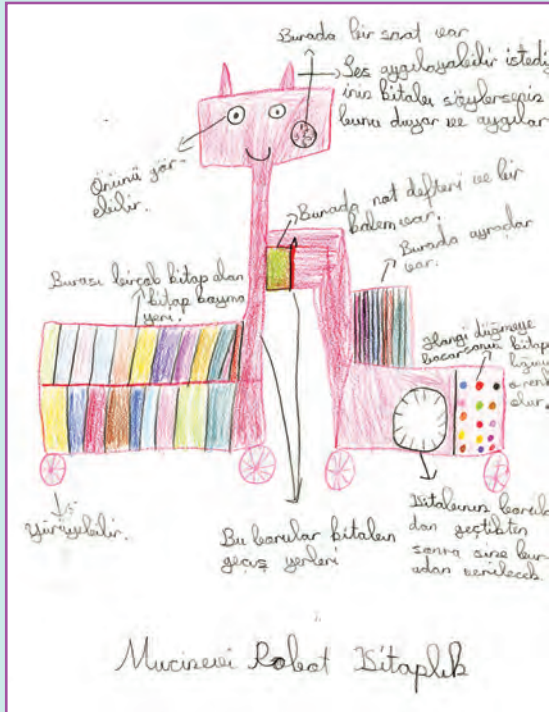 Burada bir saat var
Ses aygılayabilir istediğ
iniz kitabı söylerseniz
bunu duyar ve aygılar
Önünü gör-
ebilir.
Burada not defteri ve bir
kalem var.
Burada ayraçlar
var.
Burası birçok kitap olan
kitap koyma
yeri.
Hangi düğmeye
basarsanız kitap
o renk
olur.
Yürüyebilir.
Bu borular kitabın
geçiş yerleri
Kitabınız borula
dan geçtikten
sonra size bur-
adan verilecek.
Mucizevi Robot Kitaplık